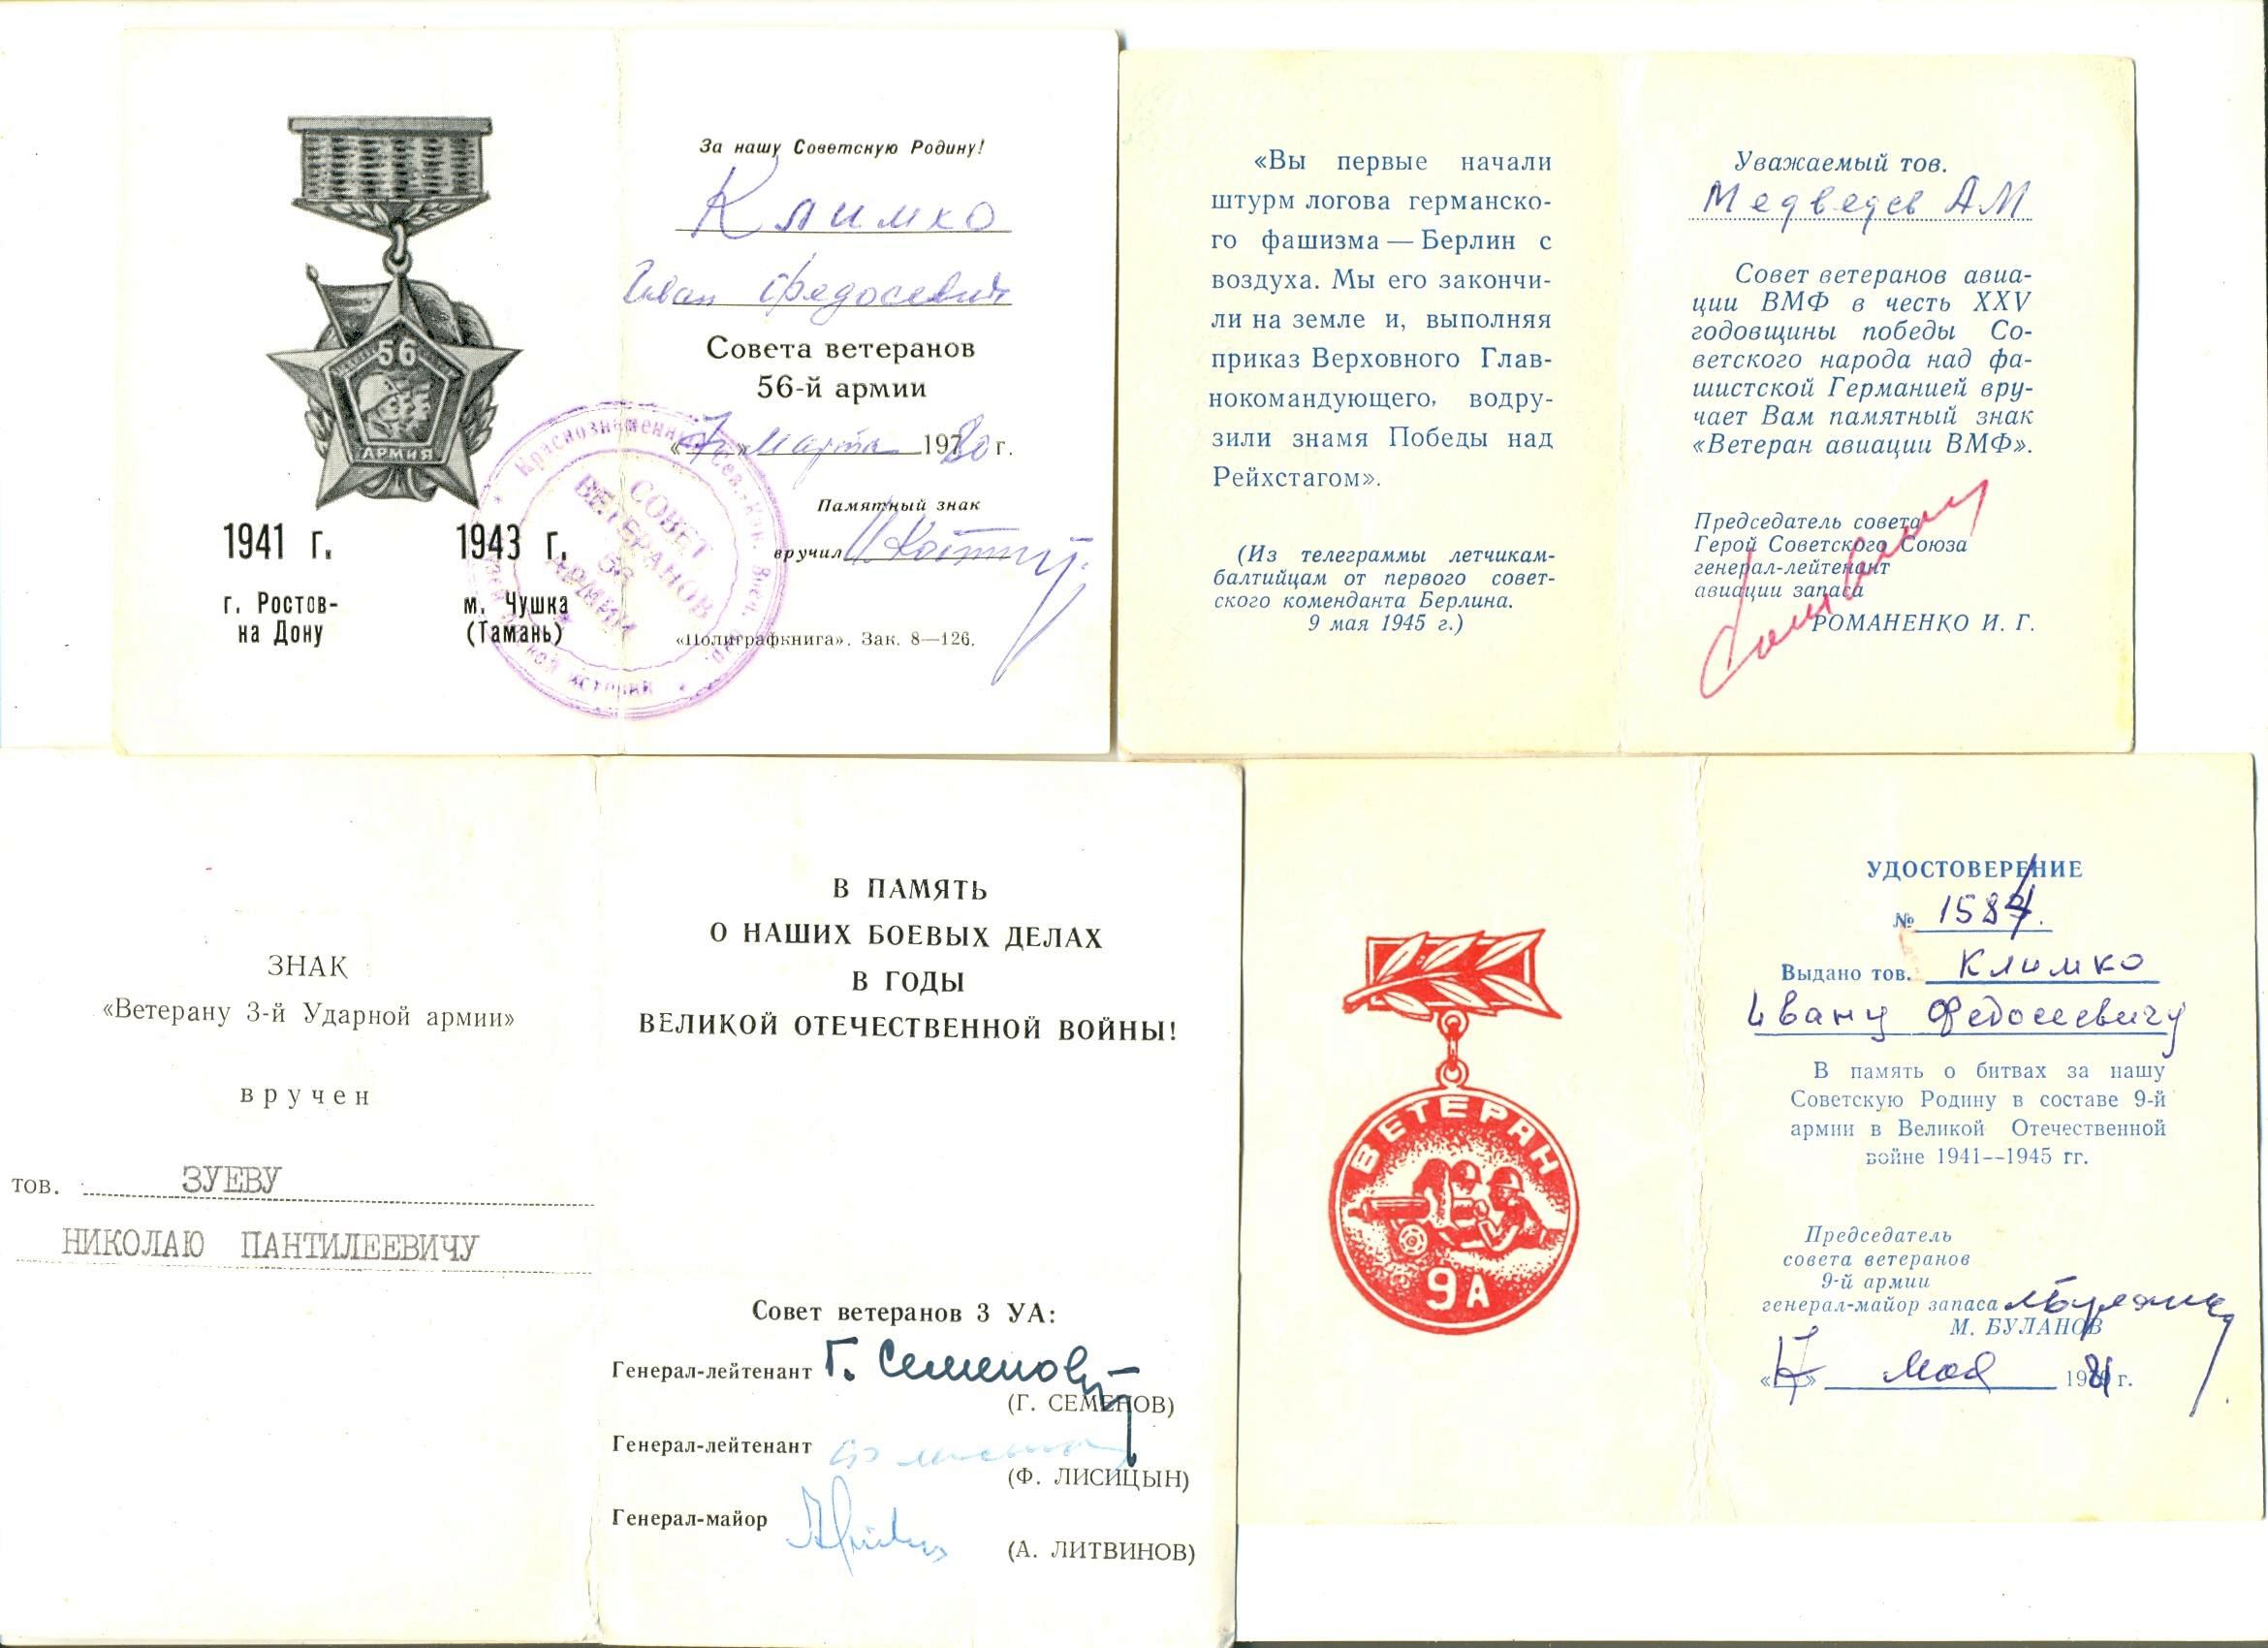 56
АРМИЯ
1941 г.
г. Ростов-
на Дону
1943 г.
м. Чушка
(Тамань)
За нашу Советскую Родину!
Климко
Иван Федосевич
Совета ветеранов
56-й армии
«7» марта 1980 г.
Памятный знак
вручил
«Полиграфкнига». Зак. 8—126.
Краснознаменный
СОВЕТ
ВЕТЕРАНОВ
56
АРМИИ
«Вы первые начали
штурм логова германско-
го фашизма — Берлин с
воздуха. Мы его закончи-
ли на земле и, выполняя
приказ Верховного Глав-
нокомандующего, водру-
зили знамя Победы над
Рейхстагом».
(Из телеграммы летчикам-
балтийцам от первого совет-
ского коменданта Берлина.
9 мая 1945 г.)
Уважаемый тов.
Медведев АМ
Совет ветеранов авиа-
ции ВМФ в честь XXV
годовщины победы Со-
ветского народа над фа-
шистской Германией вру-
чает Вам памятный знак
«Ветеран авиации ВМФ».
Председатель совета
Герой Советского Союза
генерал-лейтенант
авиации запаса
РОМАНЕНКО И. Г.
ЗНАК
«Ветерану 3-й Ударной армии»
вручен
тов. ЗУЕВУ
НИКОЛАЮ ПАНТИЛЕЕВИЧУ
В ПАМЯТЬ
О НАШИХ БОЕВЫХ ДЕЛАХ
В ГОДЫ
ВЕЛИКОЙ ОТЕЧЕСТВЕННОЙ ВОЙНЫ!
Совет ветеранов 3 УА:
Генерал-лейтенант Г. Семенов
(Г. СЕМЕНОВ)
Генерал-лейтенант
(Ф. ЛИСИЦЫН)
Генерал-майор
(А. ЛИТВИНОВ)
ВЕТЕРАН
9А
УДОСТОВЕРЕНИЕ
№ 1584.
Выдано тов. Климко
Ивану Федосеевичу
В память о битвах за нашу
Советскую Родину в составе 9-й
армии в Великой Отечественной
войне 1941—1945 гг.
Председатель
совета ветеранов
9-й армии
генерал-майор запаса
М. БУЛАНОВ
мая 1981 г.